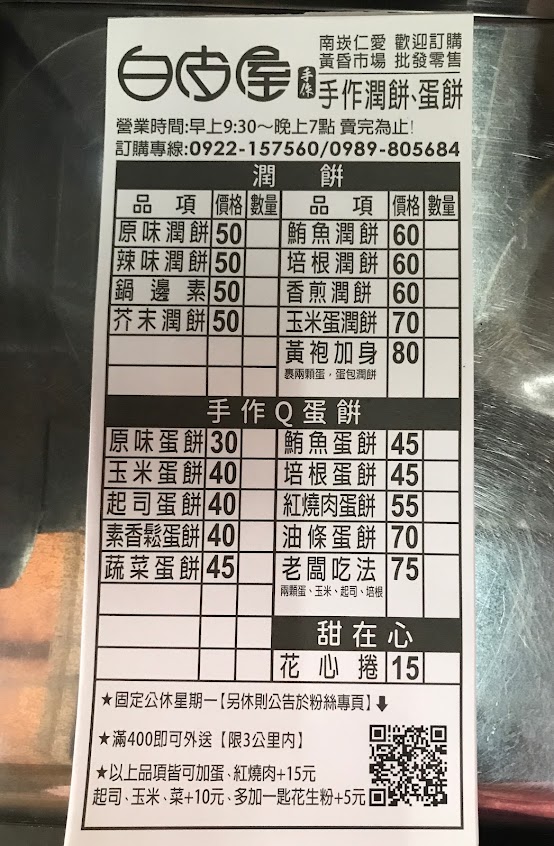 白皮屋 手作
南崁仁愛 歡迎訂購
黃昏市場 批發零售
手作潤餅、蛋餅
營業時間:早上9:30～晚上7點 賣完為止!
訂購專線:0922-157560/0989-805684
潤 餅
品項 價格 數量 品項 價格 數量
原味潤餅 50 鮪魚潤餅 60
辣味潤餅 50 培根潤餅 60
鍋邊素 50 香煎潤餅 60
芥末潤餅 50 玉米蛋潤餅 70
黃袍加身 80
裹兩顆蛋，蛋包潤餅
手作Q蛋餅
原味蛋餅 30 鮪魚蛋餅 45
玉米蛋餅 40 培根蛋餅 45
起司蛋餅 40 紅燒肉蛋餅 55
素香鬆蛋餅 40 油條蛋餅 70
蔬菜蛋餅 45 老闆吃法 75
兩顆蛋、玉米、起司、培根
甜在心
花心捲 15
★固定公休星期一【另休則公告於粉絲專頁】⬇
★滿400即可外送【限3公里內】
★以上品項皆可加蛋、紅燒肉+15元
起司、玉米、菜+10元、多加一匙花生粉+5元